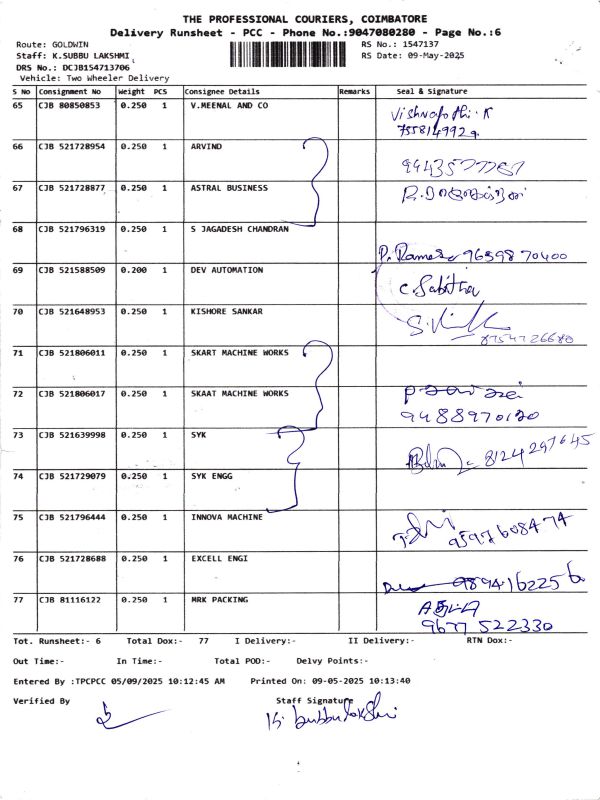 THE PROFESSIONAL COURIERS, COIMBATORE
Delivery Runsheet - PCC - Phone No.:9047080280 - Page No.:6
Route: GOLDWIN RS No.: 1547137
Staff: K.SUBBU LAKSHMI RS Date: 09-May-2025
DRS No.: DCJB154713706
Vehicle: Two Wheeler Delivery
S No Consignment No Weight PCS Consignee Details Remarks Seal & Signature
65 CJB 80850853 0.250 1 V.MEENAL AND CO
7558149929
66 CJB 521728954 0.250 1 ARVIND
67 CJB 521728877 0.250 1 ASTRAL BUSINESS
68 CJB 521796319 0.250 1 S JAGADESH CHANDRAN
P. Ramesh 9659870400
69 CJB 521588509 0.200 1 DEV AUTOMATION
C. Sabitha
70 CJB 521648953 0.250 1 KISHORE SANKAR
8754726680
71 CJB 521806011 0.250 1 SKART MACHINE WORKS
72 CJB 521806017 0.250 1 SKAAT MACHINE WORKS
9488970120
73 CJB 521639998 0.250 1 SYK
8124297645
74 CJB 521729079 0.250 1 SYK ENGG
75 CJB 521796444 0.250 1 INNOVA MACHINE
9597608474
76 CJB 521728688 0.250 1 EXCELL ENGI
9894162256
77 CJB 81116122 0.250 1 MRK PACKING
9677 522330
Tot. Runsheet:- 6 Total Dox:- 77 I Delivery:- II Delivery:- RTN Dox:-
Out Time:- In Time:- Total POD:- Delvy Points:-
Entered By :TPCPCC 05/09/2025 10:12:45 AM Printed On: 09-05-2025 10:13:40
Verified By Staff Signature
K. Subbulakshmi